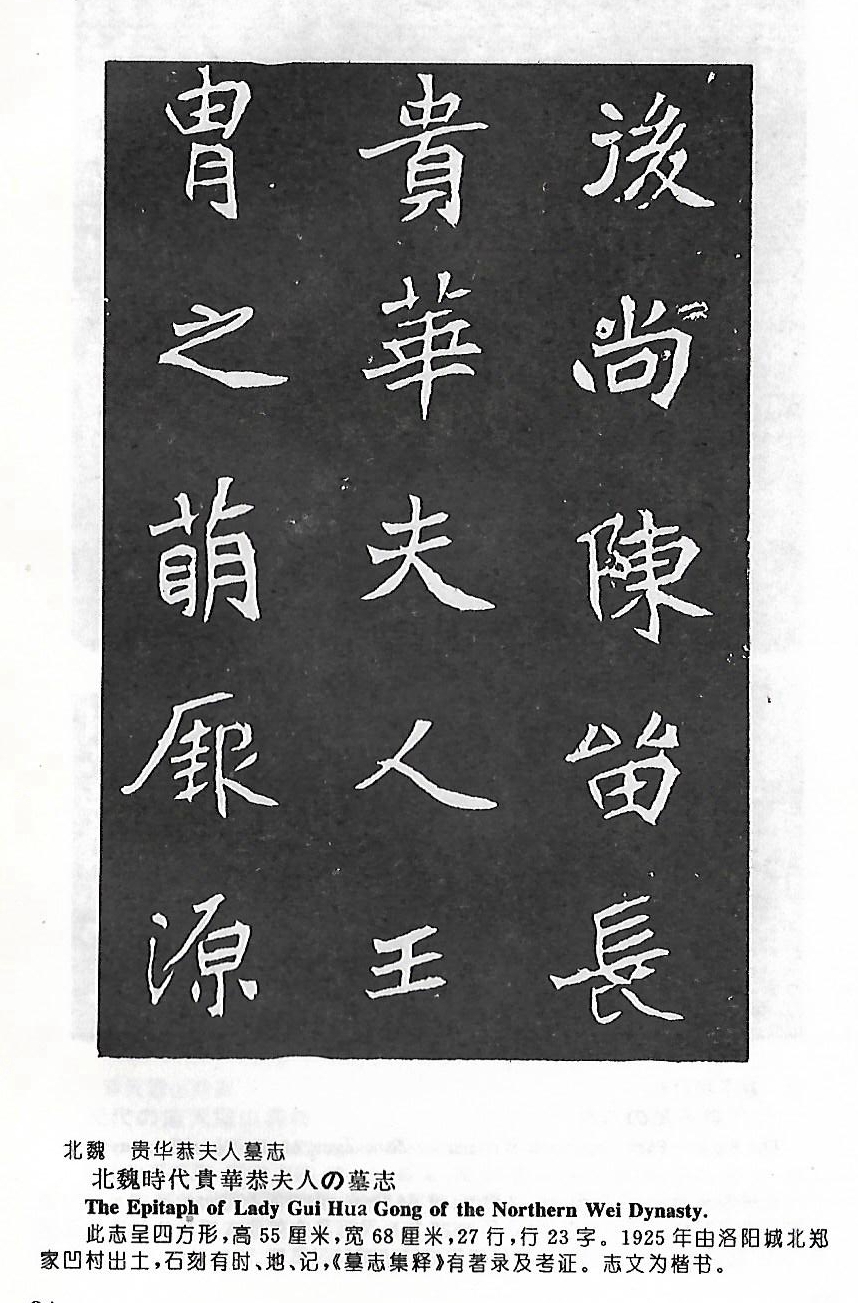 後尚陳留長
貴華夫人王
冑之萌厥源
北魏 贵华恭夫人墓志
北魏時代貴華恭夫人の墓志
The Epitaph of Lady Gui Hua Gong of the Northern Wei Dynasty.
此志呈四方形,高 55 厘米,宽 68 厘米,27 行,行 23 字。1925 年由洛阳城北郑
家凹村出土,石刻有时、地、记,《墓志集释》有著录及考证。志文为楷书。